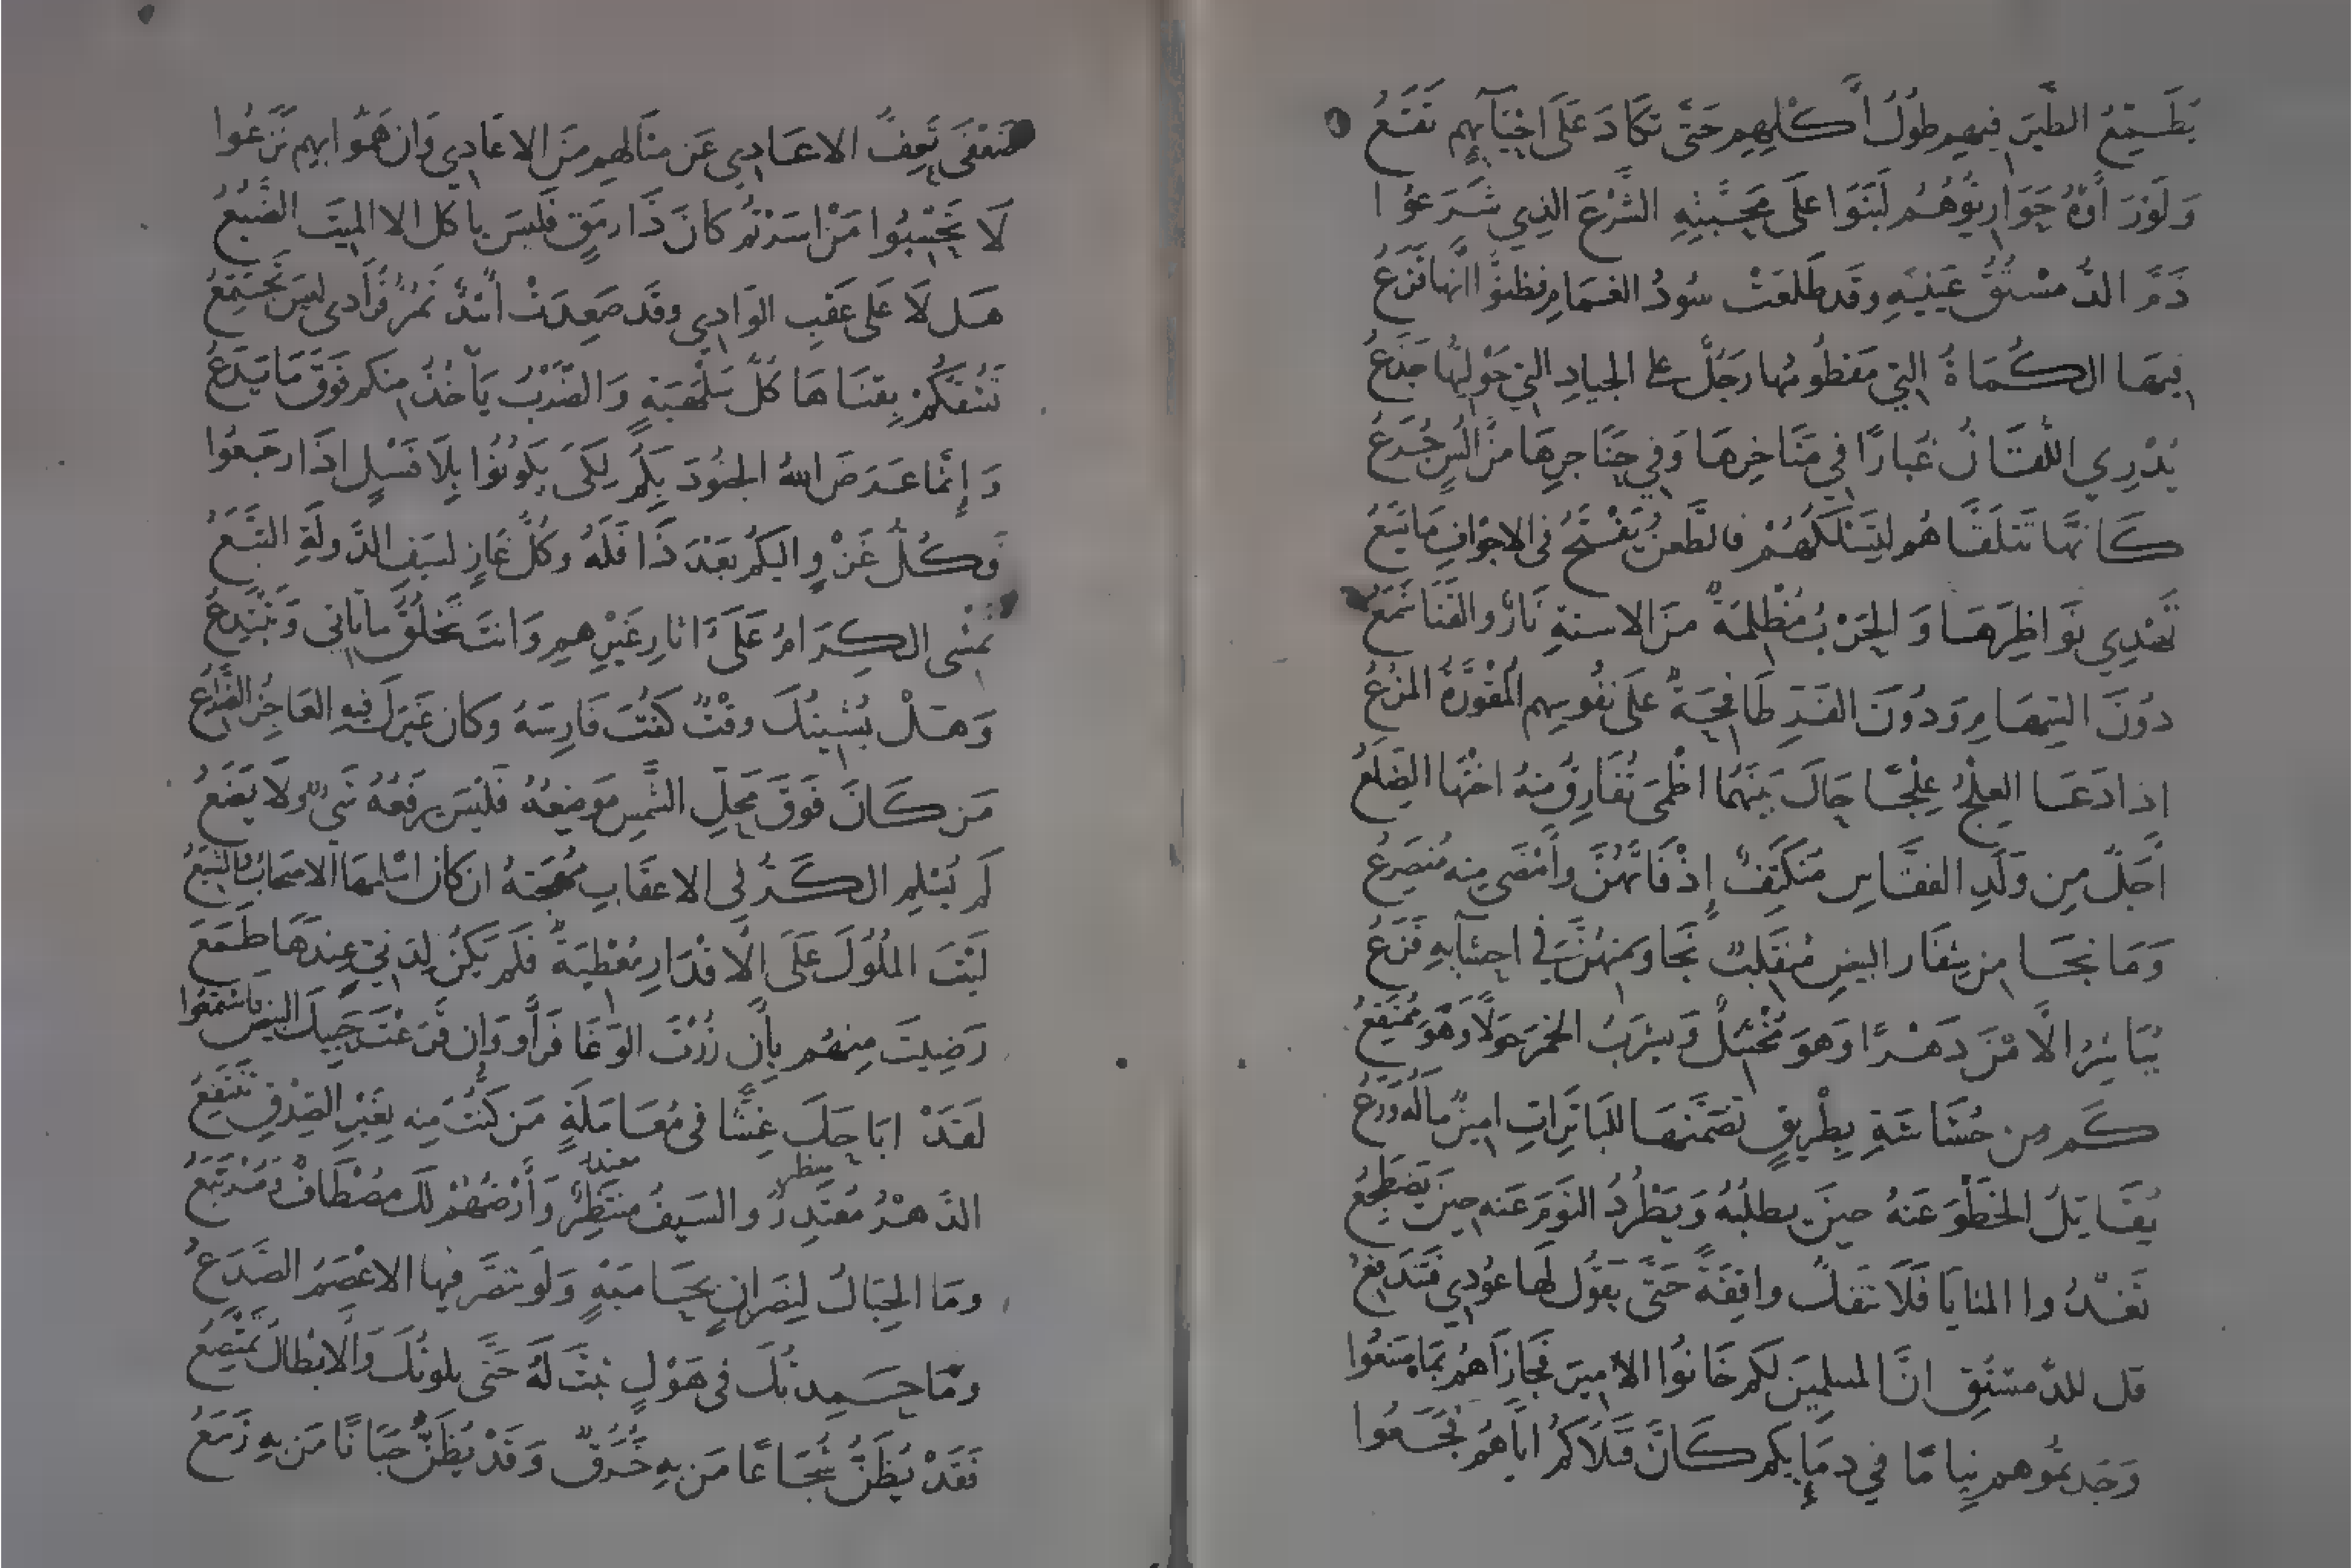 يُطَمِّعُ الطَّيْرَ فيهم طُولُ أَكْلِهِم حَتَّى تَكَادَ عَلَى احْيَآئِهِم تَقَعُ
وَلَوْ رَ اَوْهُ حَوَارِيُّوهُم لَبَنَوا عَلَى مَحَبَّتِهِ الشَّرْعَ الذِي شَرَعُوا
ذَمَّ الدُّمُسْتُقُ عَيْنَيْهِ وقَد طَلَعَتْ سُودُ الغَمَامِ فظنوا انَّهَا قَزَعُ
فِيهَا الكُمَاةُ التِي مَفطُومُهَا رَجُلٌ على الجِيادِ التِي حَوْلِيُّهَا جَذَعُ
يُذْرِي اللُّقَانُ غُبَارًا فِي مَنَاخِرِهَا وَفِي حَنَاجِرِهَا مِن الِسٍ جُرَعُ
كَانَّهَا تَتَلَقَّاهُم لِتَسْلُكَهُمْ فالطَّعنُ يَفْتَحُ فى الاجْوَافِ مَا تَسَعُ
تَهْدِي نَوَاظِرَهَا وَالحَرْبُ مُظْلِمَةٌ مِنَ الاسنةِ نَارٌ والقَنَا شَمَعُ
دُونَ السِّهَامِ وَدُونَ القَرِّ طَافِحَةٌ عَلَى نفُوسِهِم المُقْوَرَّةُ المُزُعُ
اذا دَعَا العِلْجُ عِلْجًا حَالَ بَيْنَهُمَا اظْمَى تُفَارِقُ مِنْهُ اختُهَا الضِلَعُ
اَجَلُّ مِن وَلَدِ الفقَّاسِ مُنكَتِفٌ إِذْ فَاتَهُنَّ وأَمْضَى مِنه مُنصَرِعُ
وَمَا نَجَا مِن شِفَار البيضِ مُنفَلِتٌ نَجَا ومِنهُنَّ فِي احشَآئِهِ فَزَعُ
يُبَاشِرُ الاَمْنَ دَهْرًا وَهوَ مُخْتَبَلٌ وَيشرَبُ الخمرَ حَوْلًا وَهْوَ مُمْتَقِعُ
كَم مِن حُشَاشَةِ بِطْرِيقٍ تضَمَّنَهَا لِلبَاتِرَاتِ امِينٌ مالَهُ وَرَعُ
يُقَاتِلُ الخَطْوَ عَنهُ حِينَ يطلُبُهُ وَيَطْرُدُ النَّومَ عَنه حِينَ يَضطَجِعُ
تَغدُوا المنايَا فَلَا تَنفَكُّ واقِفَةً حَتَّى يَقُولَ لَها عُودِي فتَندَفِعُ
قل للدُّمستُقِ انَّ المسلِمِينَ لَكم خَانُوا الامِيرَ فجَازَاهُم بمَا صَنعُوا
وَجَدتمُوهم نِيامًا فِي دِمَآئِكم كَانَّ قَتْلَاكُمُ ايَّاهُم فَجَعُوا
ضَعْفَى تَعِفُّ الاعَادِي عَن مثَالهِم مِنَ الاعَادِي وَان هَمُّوا بِهِم نَزَعُوا
لَا تَحْسِبُوا مَنْ اسَرْتُم كَانَ ذَا رمَقٍ فَليسَ ياكل الا الميتَ الضَّبُعُ
هَلا عَلى عَقَبِ الوَادِي وقَد صَعِدَتْ اُسْدٌ تَمُرُّ فُرَادى ليسَ تجْتَمِعُ
تَشُقُّكُمْ بِقَنَاهَا كُلُّ سَلْهَبَةٍ وَالضَّرْبُ يَأخُذُ مِنكم فَوْقَ مَا يَدَعُ
وَإِنَّمَا عَرَضَ اللهُ الجنُودَ بِكُم لِكَيْ يَكُونُوا بِلَا فَسْلٍ إِذَا رجَعُوا
فَكُلُّ غَزْوٍ اليكُم بَعْدَ ذَا فَلَهُ وكُلُّ غَازٍ لسَيفِ الدَّولَةِ التَّبَعُ
تمْشِى الكِرَامُ عَلَى اثارِ غَيرِهِم وَانتَ تَخلُقُ ما تاتِي وَتَبتَدِعُ
وَهَلْ يُشِينُكَ وقْتٌ كُنتَ فَارِسَهُ وكانَ غَيرَكَ فِيهِ العَاجِزُ الضَّرَعُ
مَن كَانَ فَوقَ مَحلِّ الشَّمسِ مَوضِعُهُ فَليْسَ يَرفَعُهُ شَيءٌ ولَا يَضَعُ
لَم يُسْلِمِ الكَرُّ فِى الاعقَابِ مُهجَتَهُ ان كَانَ اسْلمهَا الاصحَابُ والشِّيَعُ
لَيْتَ المُلُوكَ عَلَى الاَقْدَارِ مُعْطِيَةٌ فَلم يَكُنْ لِدَنِيٍّ عِندَهَا طَمَعُ
رَضِيتَ مِنهُم بِأَن زُرْتَ الوَغَا فَرَأَوا وَان قَرَعْتَ حَبِيكَ البيضِ فَاسْتَمعُوا
لَقَدْ ابَاحَكَ غِشًّا فى مُعَامَلَةٍ مَن كُنتَ مِنه بِغَيرِ الصِّدْقِ تَنتَفِعُ
منتظر معتذر
الدَّهْرُ مُعْتَذِرٌ والسَيفُ مُنتَظِرٌ وَأَرْضُهُمْ لَكَ مُصْطَافٌ وَمُرْتَبَعُ
ومَا الجِبَالُ لِنَصرَانٍ بِحَامِيَةٍ وَلَو تنصَّرَ فِيهَا الاعْصَمُ الصَّدَعُ
ومَا حَمِدتُكَ فى هَوْلٍ ثبَتَّ لَهُ حَتَّى بلوتُكَ وَالابْطالُ تَمْتَصِعُ
فَقَدْ يُظَنُّ شُجَاعًا مَن بِهِ خُرُقٌ وَقَدْ يُظَنُّ جَبَانًا مَن بِهِ زَمَعُ